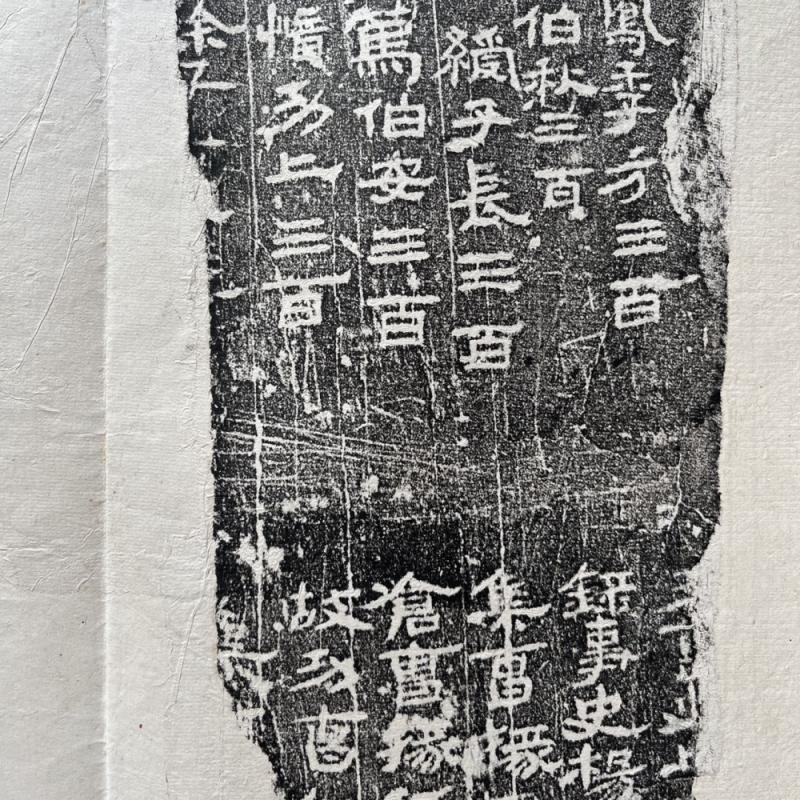 鳳季方三百
伯秋三百
綬子長三百
篤伯安三百
上三百
錄事史楊
集曹掾
倉曹掾
故功曹